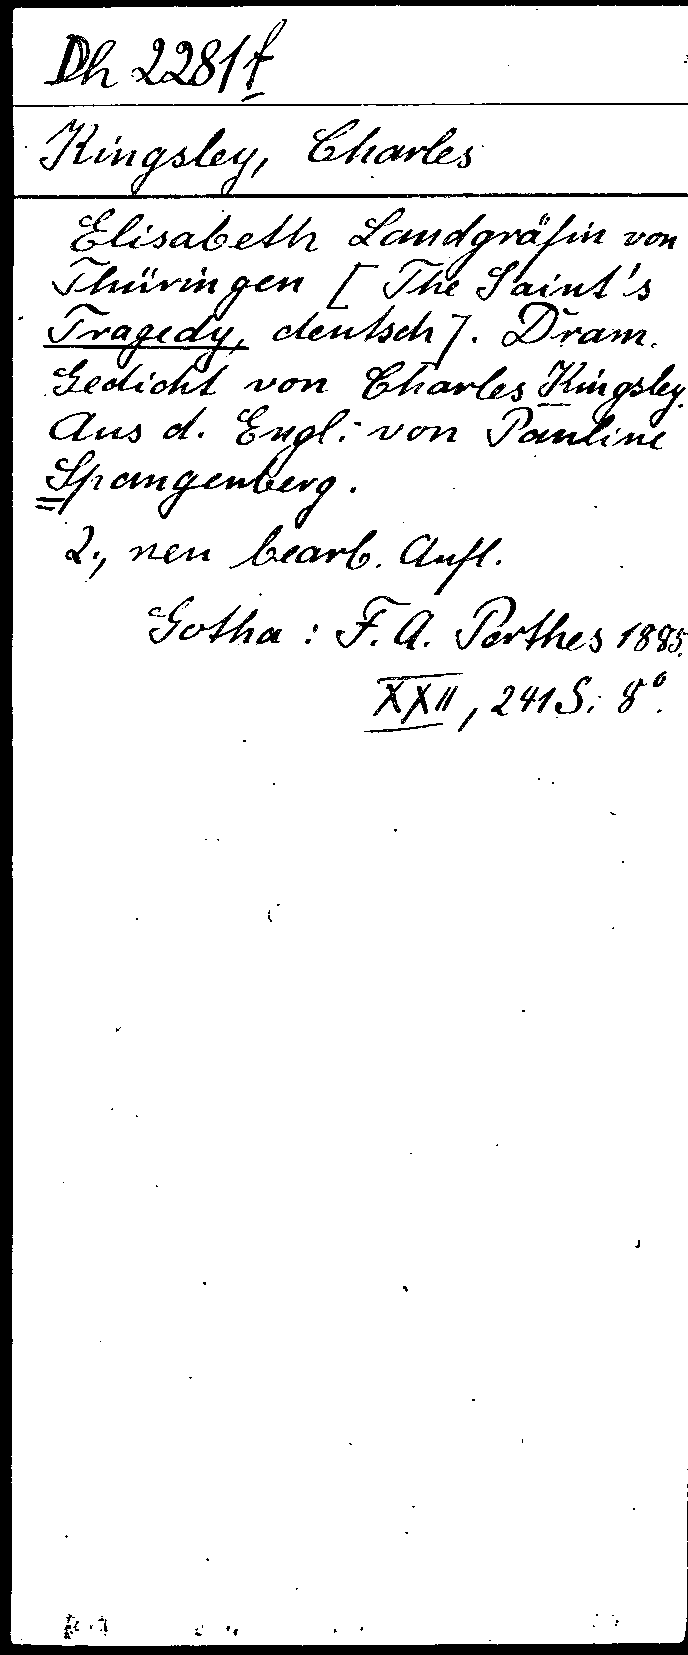 Dh 2281f
Kingsley, Charles
Elisabeth Landgräfin von
Thüringen [The Saint's
Tragedy, deutsch]. Dram.
Gedicht von Charles Kingsley.
Aus d. Engl. von Pauline
Spangenberg.
2., neu bearb. Aufl.
Gotha: F. A. Perthes 1885.
XXII, 241 S. 8°.